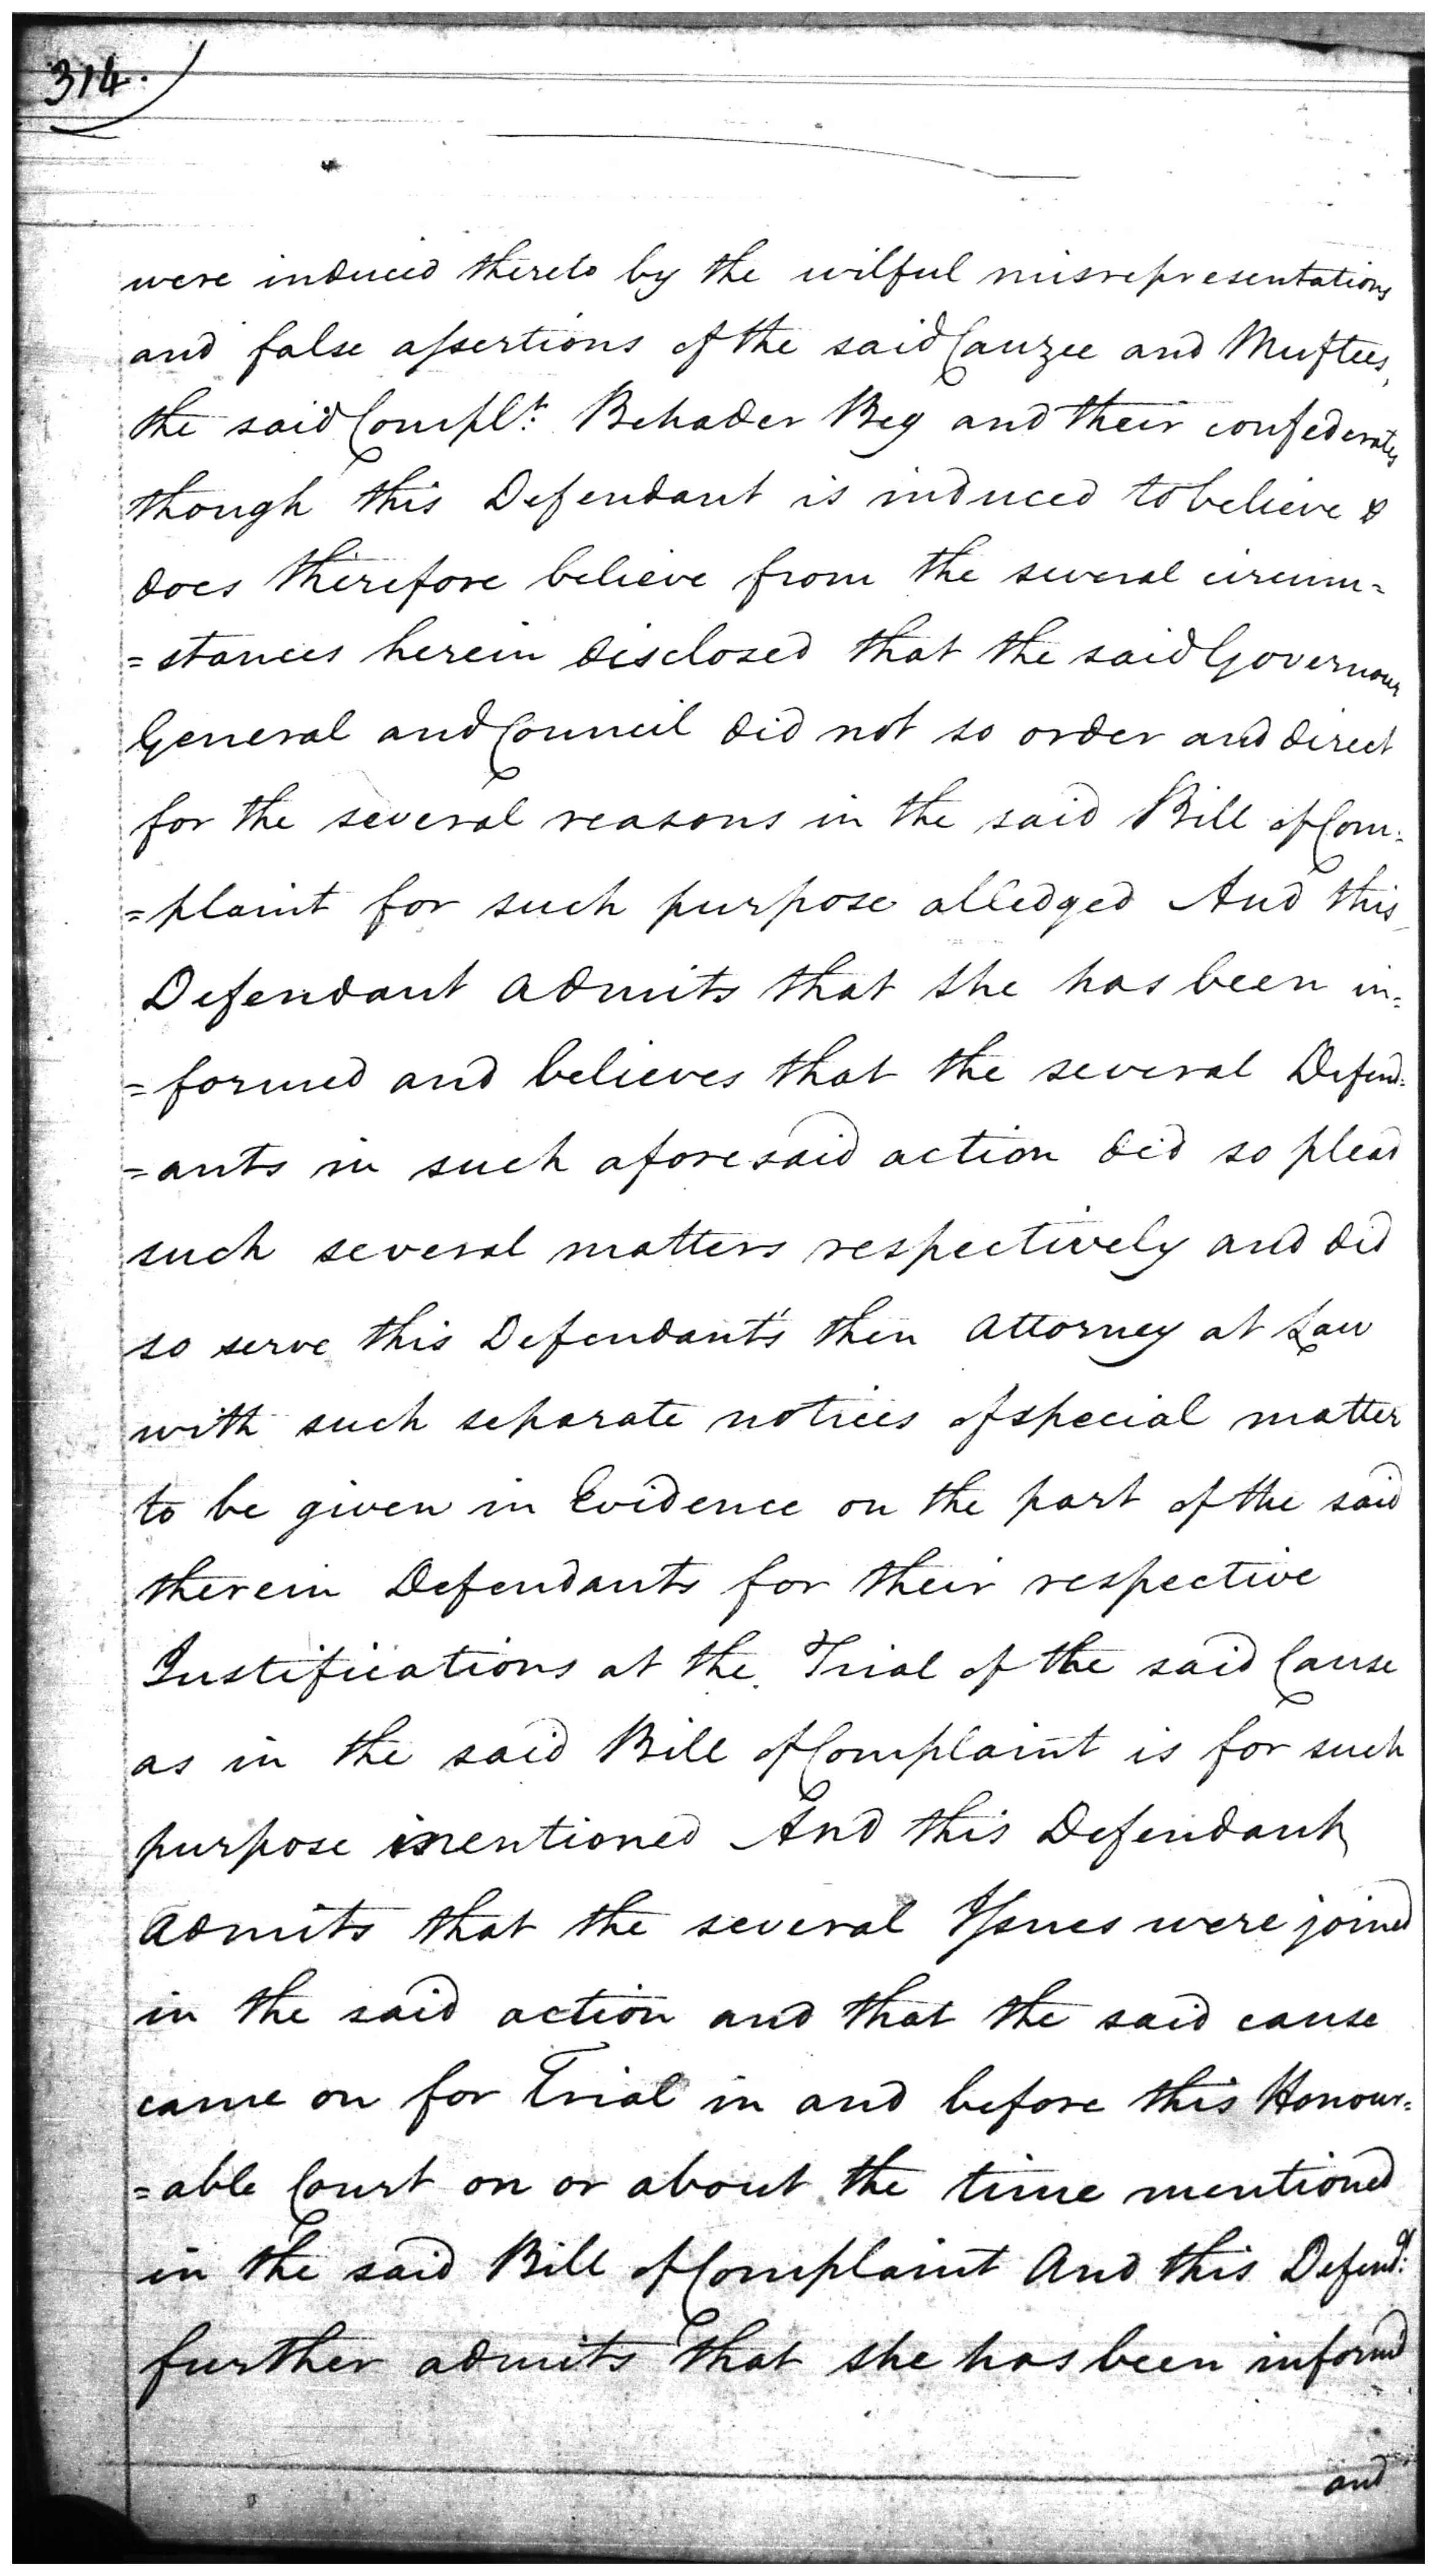 314.
were induced thereto by the wilful misrepresentations
and false assertions of the said Cauzee and Muftees,
the said Complt. Behader Beg and their confederates
though this Defendant is induced to believe &
does therefore believe from the several circum=
=stances herein disclosed that the said Governour
General and Council did not so order and direct
for the several reasons in the said Bill of Com=
=plaint for such purpose alledged And this
Defendant admits that she has been in=
=formed and believes that the several Defend=
=ants in such aforesaid action did so plead
such several matters respectively and did
so serve this Defendant's then Attorney at Law
with such separate notices of special matter
to be given in Evidence on the part of the said
therein Defendants for their respective
Justifications at the Trial of the said Cause
as in the said Bill of Complaint is for such
purpose mentioned And this Defendant
Admits that the several Issues were joined
in the said action and that the said cause
came on for Trial in and before this Honour=
=able Court on or about the time mentioned
in the said Bill of Complaint And this Defend.
further admits that she has been informd
and